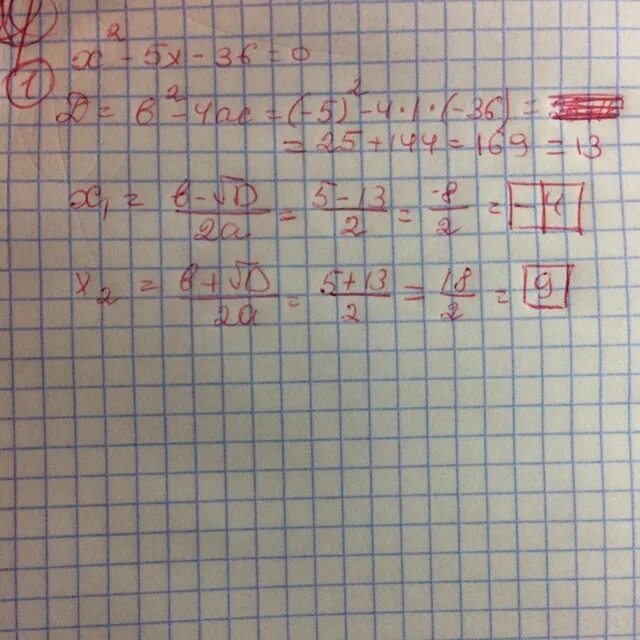 ①
x² - 5x - 36 = 0
D = b² - 4ac = (-5)² - 4·1·(-36) =
= 25 + 144 = 169 = 13
x₁ = (b - √D)/(2a) = (5 - 13)/2 = -8/2 = -4
x₂ = (b + √D)/(2a) = (5 + 13)/2 = 18/2 = 9